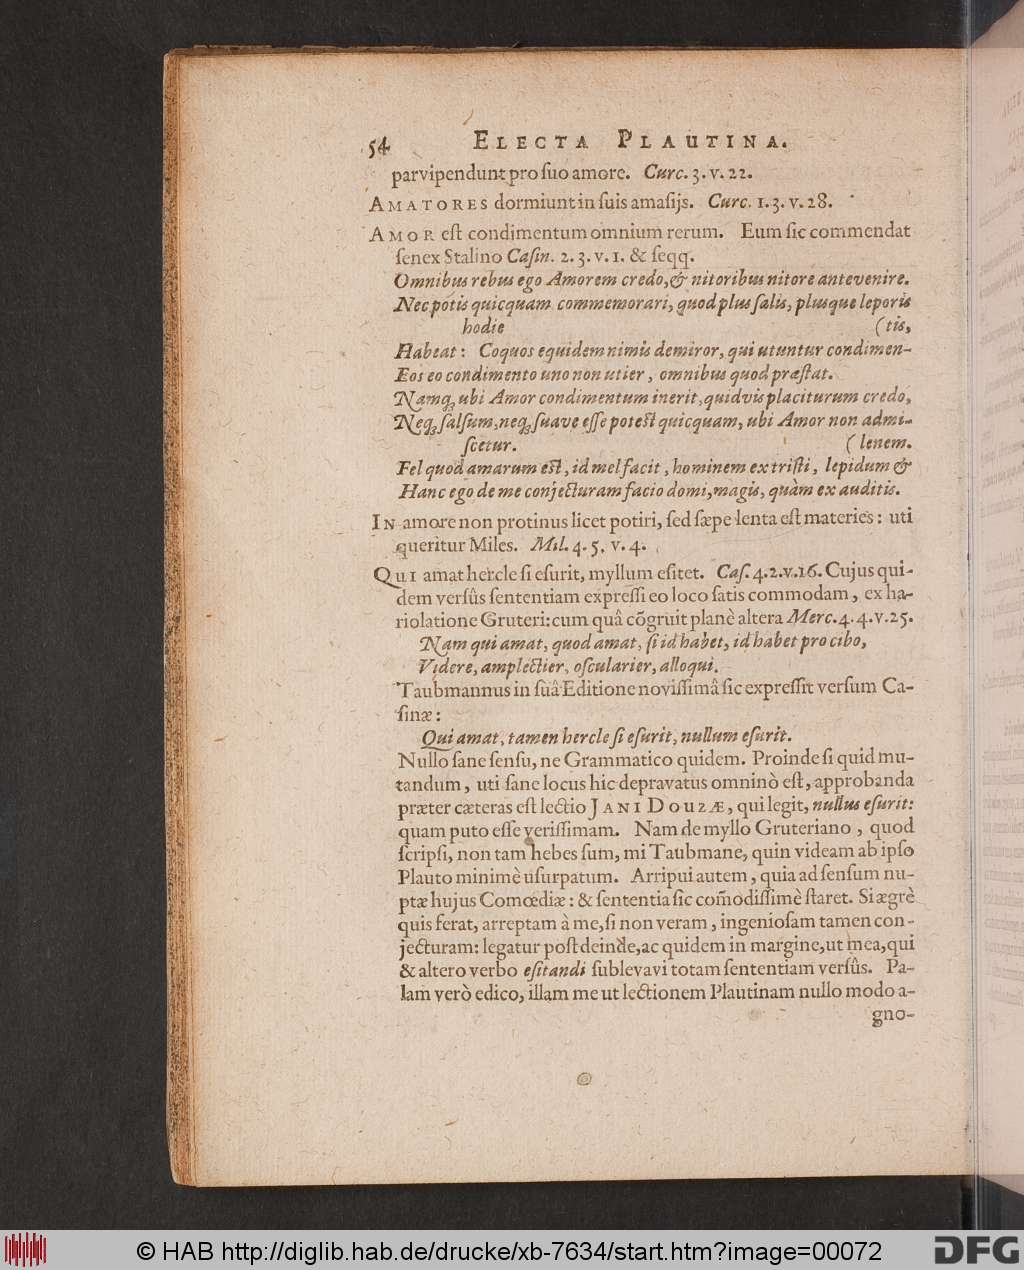 54 ELECTA PLAUTINA.
parvipendunt pro ſuo amore. Curc. 3. v. 22.
AMATORES dormiunt in ſuis amaſijs. Curc. 1. 3. v. 28.
AMOR eſt condimentum omnium rerum. Eum ſic commendat
ſenex Stalino Caſin. 2. 3. v. 1. & ſeqq.
Omnibus rebus ego Amorem credo, & nitoribus nitore antevenire.
Nec potis quicquam commemorari, quod plus ſalis, plusque leporis
hodie (tis,
Habeat: Coquos equidem nimis demiror, qui utuntur condimen-
Eos eo condimento uno non utier, omnibus quod præſtat.
Namq; ubi Amor condimentum inerit, quidvis placiturum credo,
Neq; ſalſum, neq; ſuave eſſe potest quicquam, ubi Amor non admi-
ſcetur. (lenem.
Fel quod amarum est, id mel facit, hominem ex triſti, lepidum &
Hanc ego de me conjecturam facio domi, magis, quàm ex auditis.
IN amore non protinus licet potiri, ſed ſæpe lenta eſt materies: uti
queritur Miles. Mil. 4. 5. v. 4.
QUI amat hercle ſi eſurit, myllum eſitet. Caſ. 4. 2. v. 16. Cujus qui-
dem verſûs ſententiam expreſſi eo loco ſatis commodam, ex ha-
riolatione Gruteri: cum quâ cõgruit planè altera Merc. 4. 4. v. 25.
Nam qui amat, quod amat, ſi id habet, id habet pro cibo,
Videre, amplectier, oſcularier, alloqui.
Taubmannus in ſuâ Editione noviſſimâ ſic expreſſit verſum Ca-
ſinæ:
Qui amat, tamen hercle ſi eſurit, nullum eſurit.
Nullo ſane ſenſu, ne Grammatico quidem. Proinde ſi quid mu-
tandum, uti ſane locus hic depravatus omninò eſt, approbanda
præter cæteras eſt lectio JANI DOUZÆ, qui legit, nullus eſurit:
quam puto eſſe veriſſimam. Nam de myllo Gruteriano, quod
ſcripſi, non tam hebes ſum, mi Taubmane, quin videam ab ipſo
Plauto minimè uſurpatum. Arripui autem, quia ad ſenſum nu-
ptæ hujus Comœdiæ: & ſententia ſic com̃odiſſimè ſtaret. Si ægrè
quis ferat, arreptam à me, ſi non veram, ingenioſam tamen con-
jecturam: legatur poſt deinde, ac quidem in margine, ut mea, qui
& altero verbo eſitandi ſublevavi totam ſententiam verſûs. Pa-
lam verò edico, illam me ut lectionem Plautinam nullo modo a-
gno-
© HAB http://diglib.hab.de/drucke/xb-7634/start.htm?image=00072 DFG